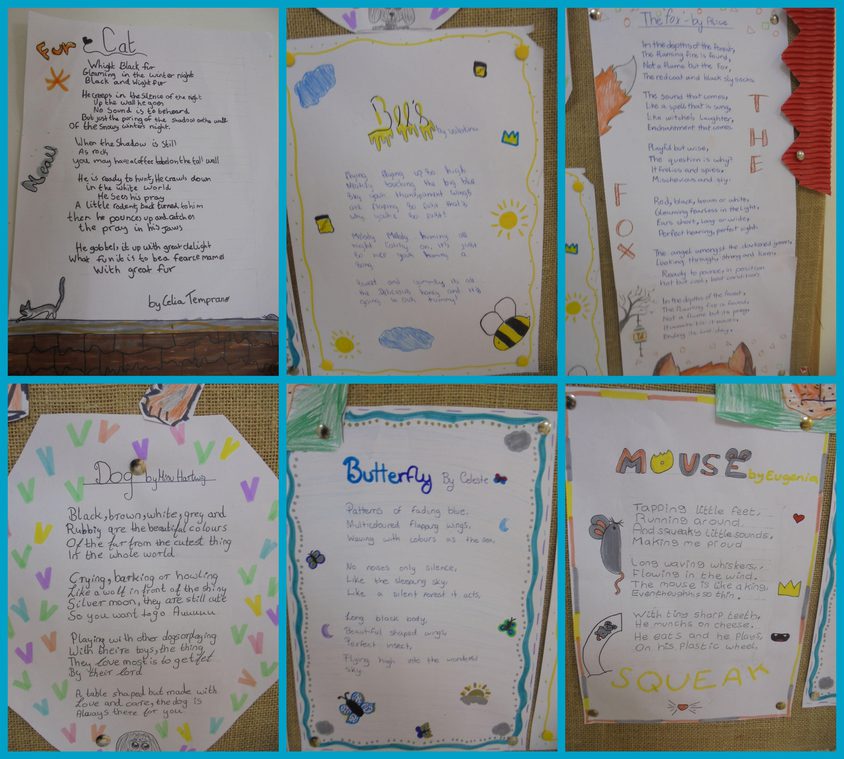 Fur Cat
Whight Black fur
Gloeming in the winter night
Black and Wight Fur
He creeps in the silence of the night
Up the wall he goes
No Sound is to beheard
But just the purring of the shadow on the wall
Of the snowy winters night.
When the Shadow is still
As rock
you may have a coffee
He is ready to hunt, He crawls down
in the white world
He Sees his pray
A little rodent, back turned to him
then he pounces up and catches
the pray in his jaws
He gobbels it up with great delight
What fun it is to be a fearce mamel
With great fur
by Celia Temprano
Meow
Bee's
by Valentina
Flying flying up to high
Mostly touching the big blue
sky your transparent wings
are flying so cute that's
why you're so cute!
Melody Melody humming all
night Calling on, it's just
to nice your humming a
song.
Sweet and yummily its all
the delicious honey and it's
going in our tummy!
The Fox - by Alice
In the depths of the forest,
The flaming fire is found,
Not a flame but the Fox,
The red coat and black sly socks.
The sound that comes,
Like a spell that is sung,
Like witche's laughter,
Enchantment that comes.
Playful but wise,
The question is why?
It frolics and spies,
Mischievous and sly.
Red, black, brown or white,
Gleaming fearless in the light,
Ears short, long or wide,
Perfect hearing, perfect sight.
The angel amongst the darkened
Looking through, strong and
Ready to pounce, in position
Hot but cool,
In the depths of the forest,
The flaming fire is found,
Not a flame but its prey,
It waits for it waits,
Ending its last day.
THE
FOX
Dog by Mro Hartwig
Black, brown, white, grey and
Rubbig are the beautiful colours
Of the fur from the cutest thing
In the whole world
Crying, barking or howling
Like a wolf in front of the shiny
Silver moon, they are still cute
So you want to go Auuuuu
Playing with other dogs or playing
With theire toys, the thing
They love most is to get fet
By their lord
A table shaped but made with
Love and care, the dog is
Always there for you
Butterfly By Celeste
Patterns of fading blue,
Multicoloured flapping wings,
Waving with colours as the sea,
No noises only silence,
Like the sleeping sky,
Like a silent forest it acts,
Long black body,
Beautiful shaped wings,
Perfect insect,
Flying high into the wonderful
sky
MOUSE by Eugenia
Tapping little feet,
Running around,
And squeaky little sounds,
Making me proud
Long waving whiskers,
Flowing in the wind.
The mouse is like a king,
Even though is so thin.
With ting sharp teeth,
He munchs on cheese.
He eats and he plays,
On his plastic wheel.
SQUEAK